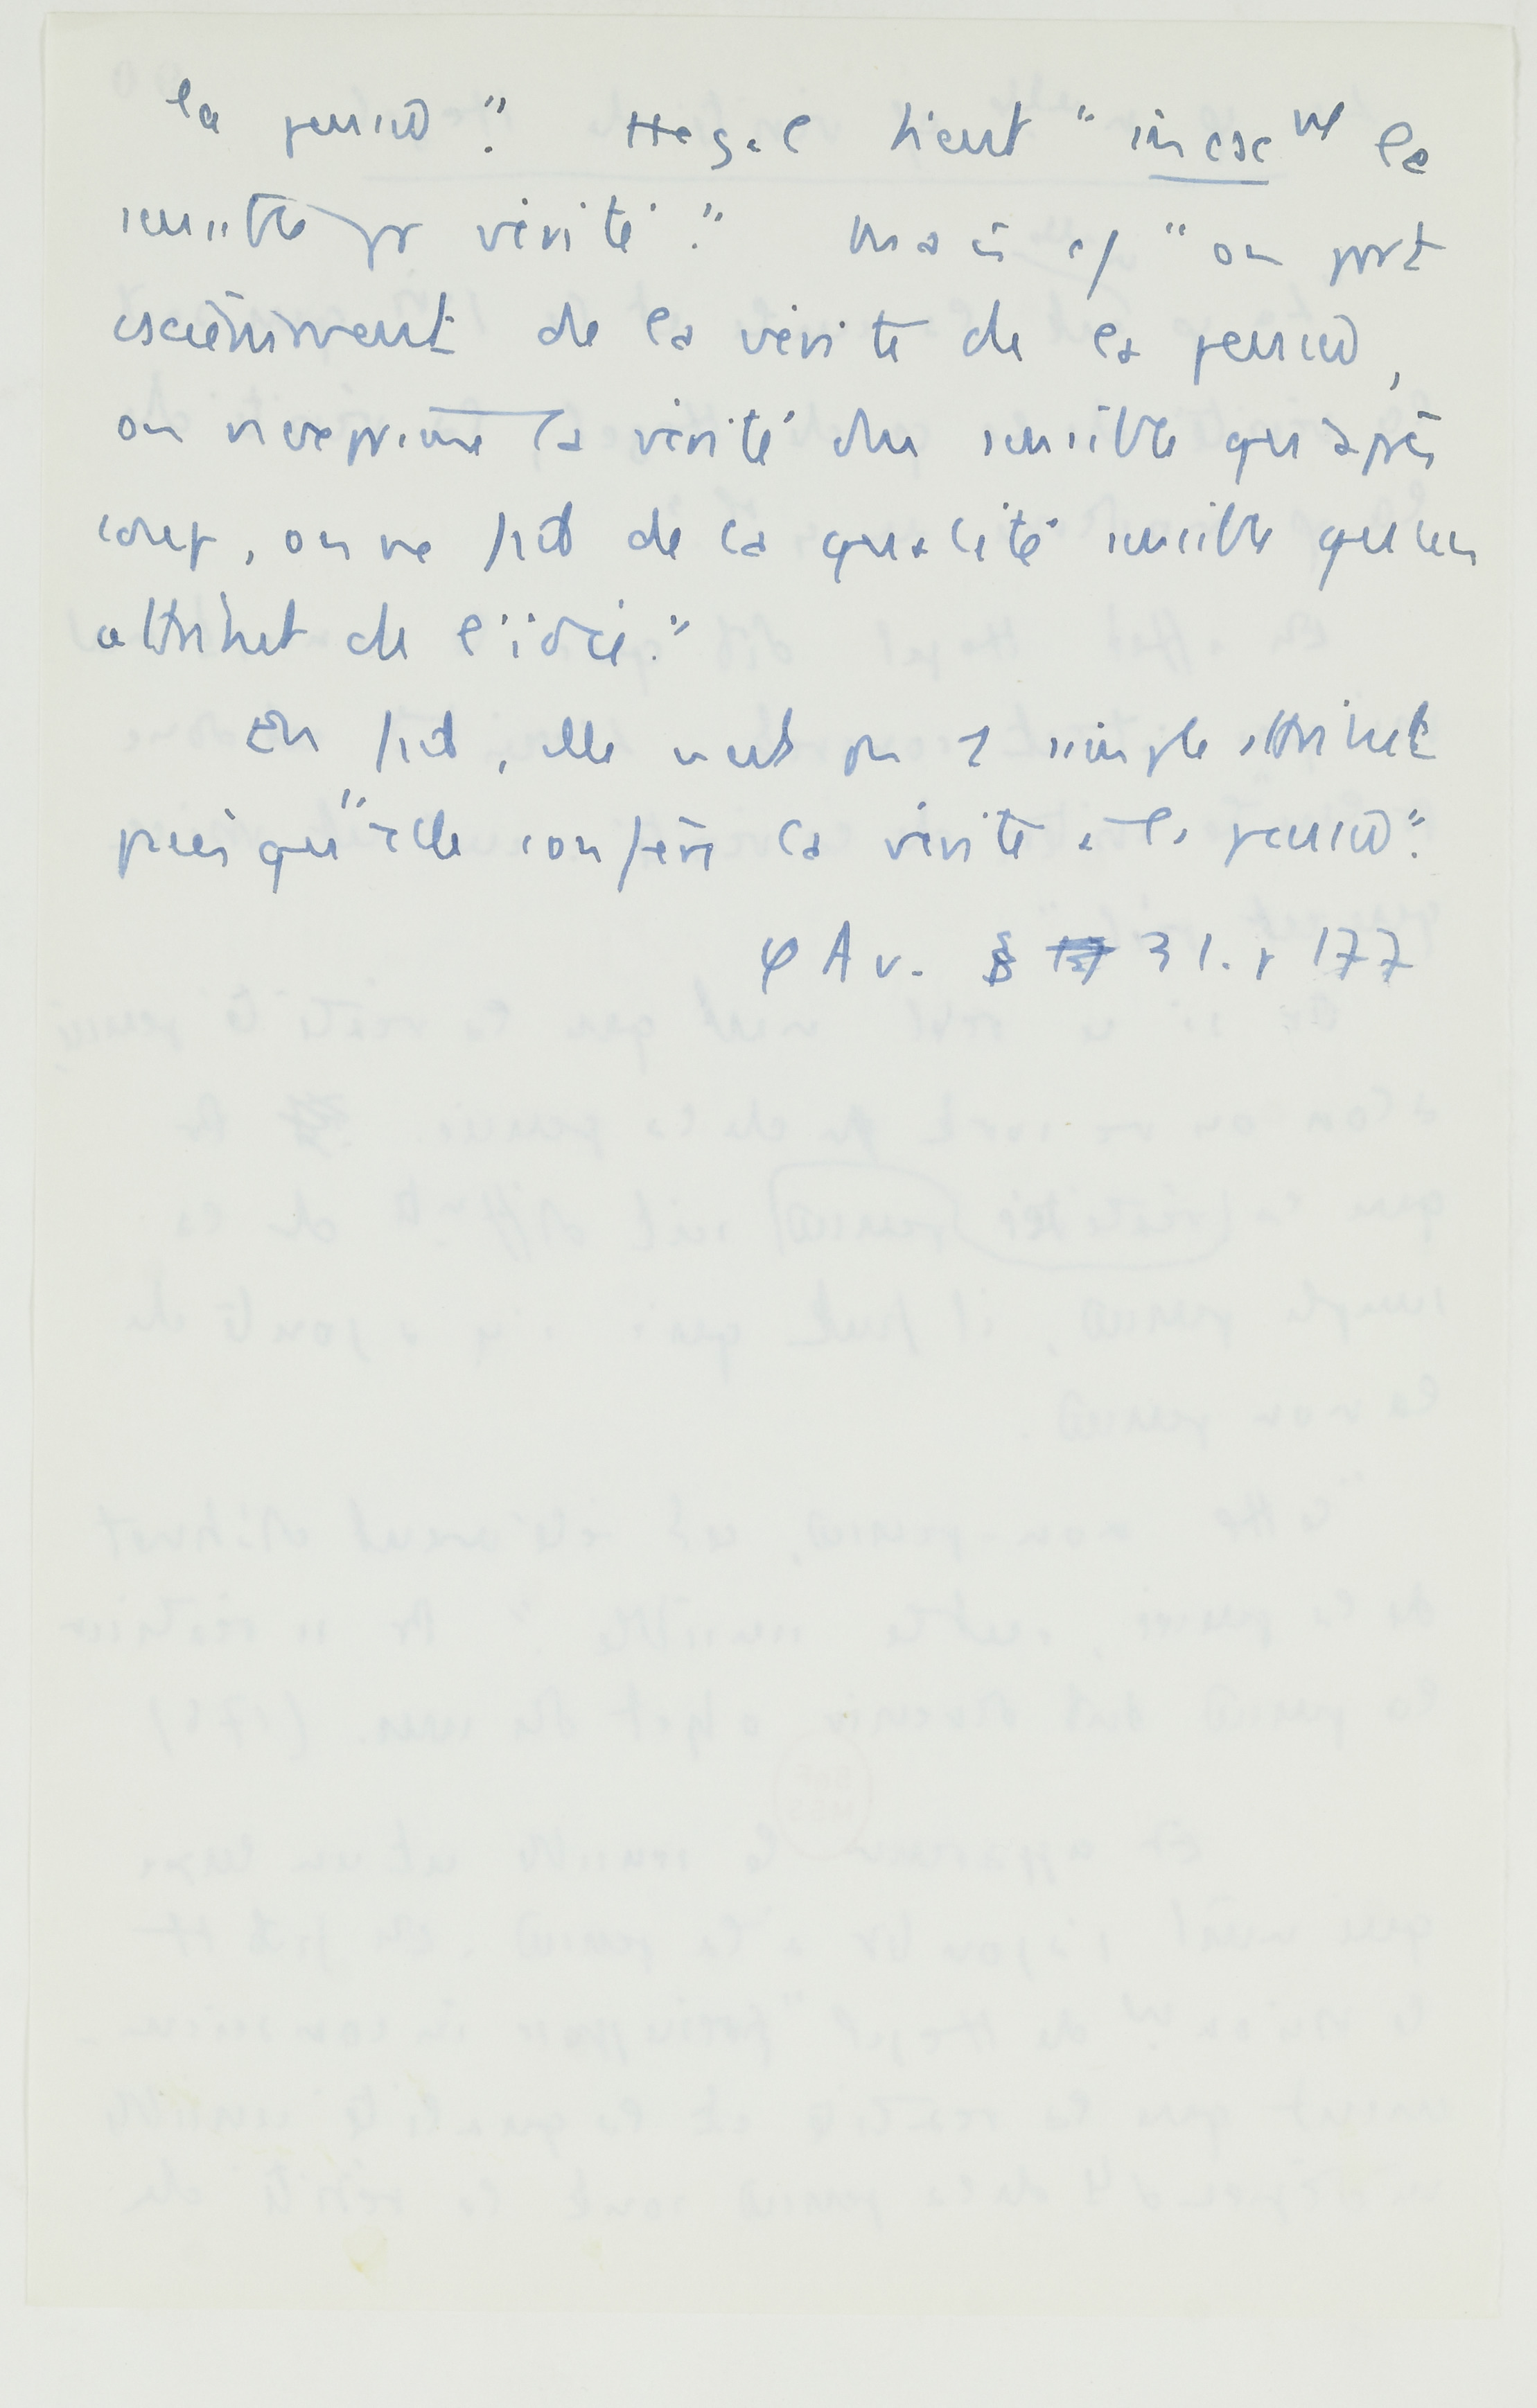 la pensée". Hegel tient "incsc<sup>nt</sup> le
sensible pr vérité." Mais c/ "on part
csciemment de la vérité de la pensée,
on n'exprime la vérité du sensible qu'après
coup, on ne fait de la qualité sensible qu'un
attribut de l'idée."
En fait, elle n'est pas 1 simple attribut
puisqu'"elle confère la vérité à la pensée".
φ Av. § 31. p 177